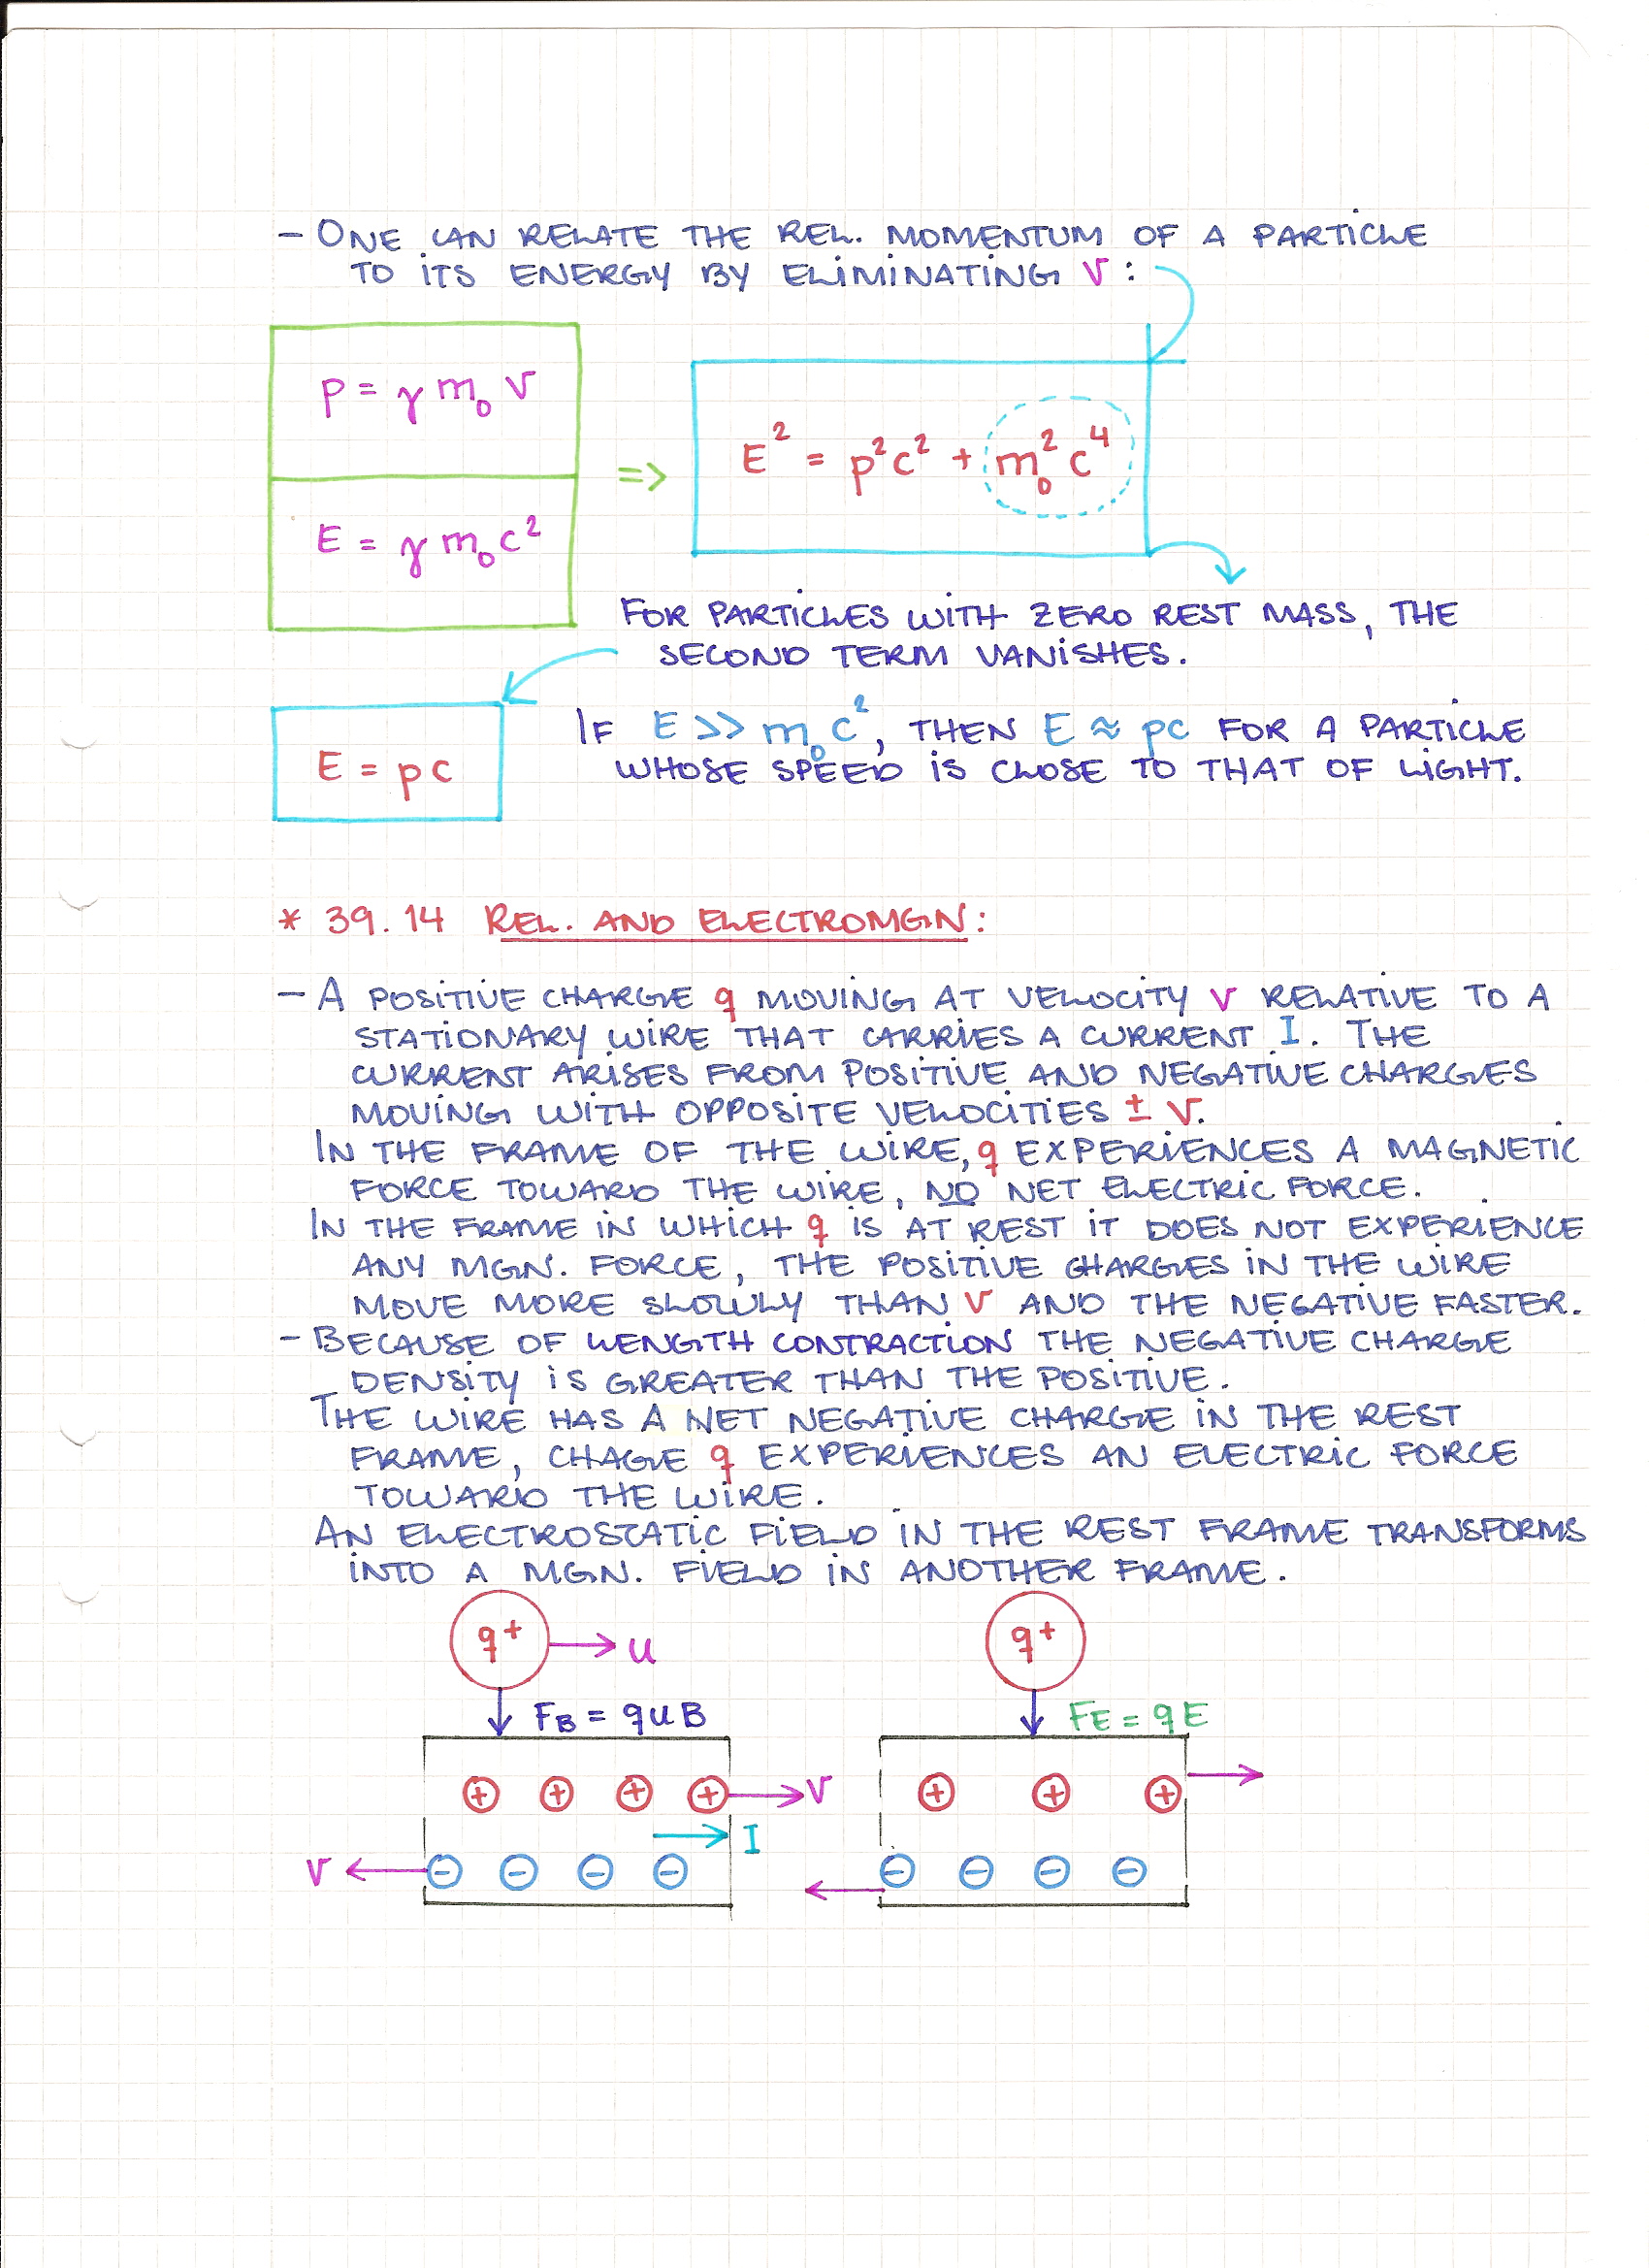 - ONE CAN RELATE THE REL. MOMENTUM OF A PARTICLE
TO ITS ENERGY BY ELIMINATING v:
p = γ m₀ v
E = γ m₀ c²
=>
E² = p²c² + m₀² c⁴
FOR PARTICLES WITH ZERO REST MASS, THE
SECOND TERM VANISHES.
E = pc
IF E >> m₀c², THEN E ≈ pc FOR A PARTICLE
WHOSE SPEED IS CLOSE TO THAT OF LIGHT.
* 39.14 REL. AND ELECTROMGN:
- A POSITIVE CHARGE q MOVING AT VELOCITY v RELATIVE TO A
STATIONARY WIRE THAT CARRIES A CURRENT I. THE
CURRENT ARISES FROM POSITIVE AND NEGATIVE CHARGES
MOVING WITH OPPOSITE VELOCITIES ± v.
IN THE FRAME OF THE WIRE, q EXPERIENCES A MAGNETIC
FORCE TOWARD THE WIRE, NO NET ELECTRIC FORCE.
IN THE FRAME IN WHICH q IS AT REST IT DOES NOT EXPERIENCE
ANY MGN. FORCE, THE POSITIVE CHARGES IN THE WIRE
MOVE MORE SLOWLY THAN v AND THE NEGATIVE FASTER.
- BECAUSE OF LENGTH CONTRACTION THE NEGATIVE CHARGE
DENSITY IS GREATER THAN THE POSITIVE.
THE WIRE HAS A NET NEGATIVE CHARGE IN THE REST
FRAME, CHAGE q EXPERIENCES AN ELECTRIC FORCE
TOWARD THE WIRE.
AN ELECTROSTATIC FIELD IN THE REST FRAME TRANSFORMS
INTO A MGN. FIELD IN ANOTHER FRAME.
q+ u
F_B = quB
+ + + + v
I
v - - - -
q+
F_E = qE
+ + +
- - - -